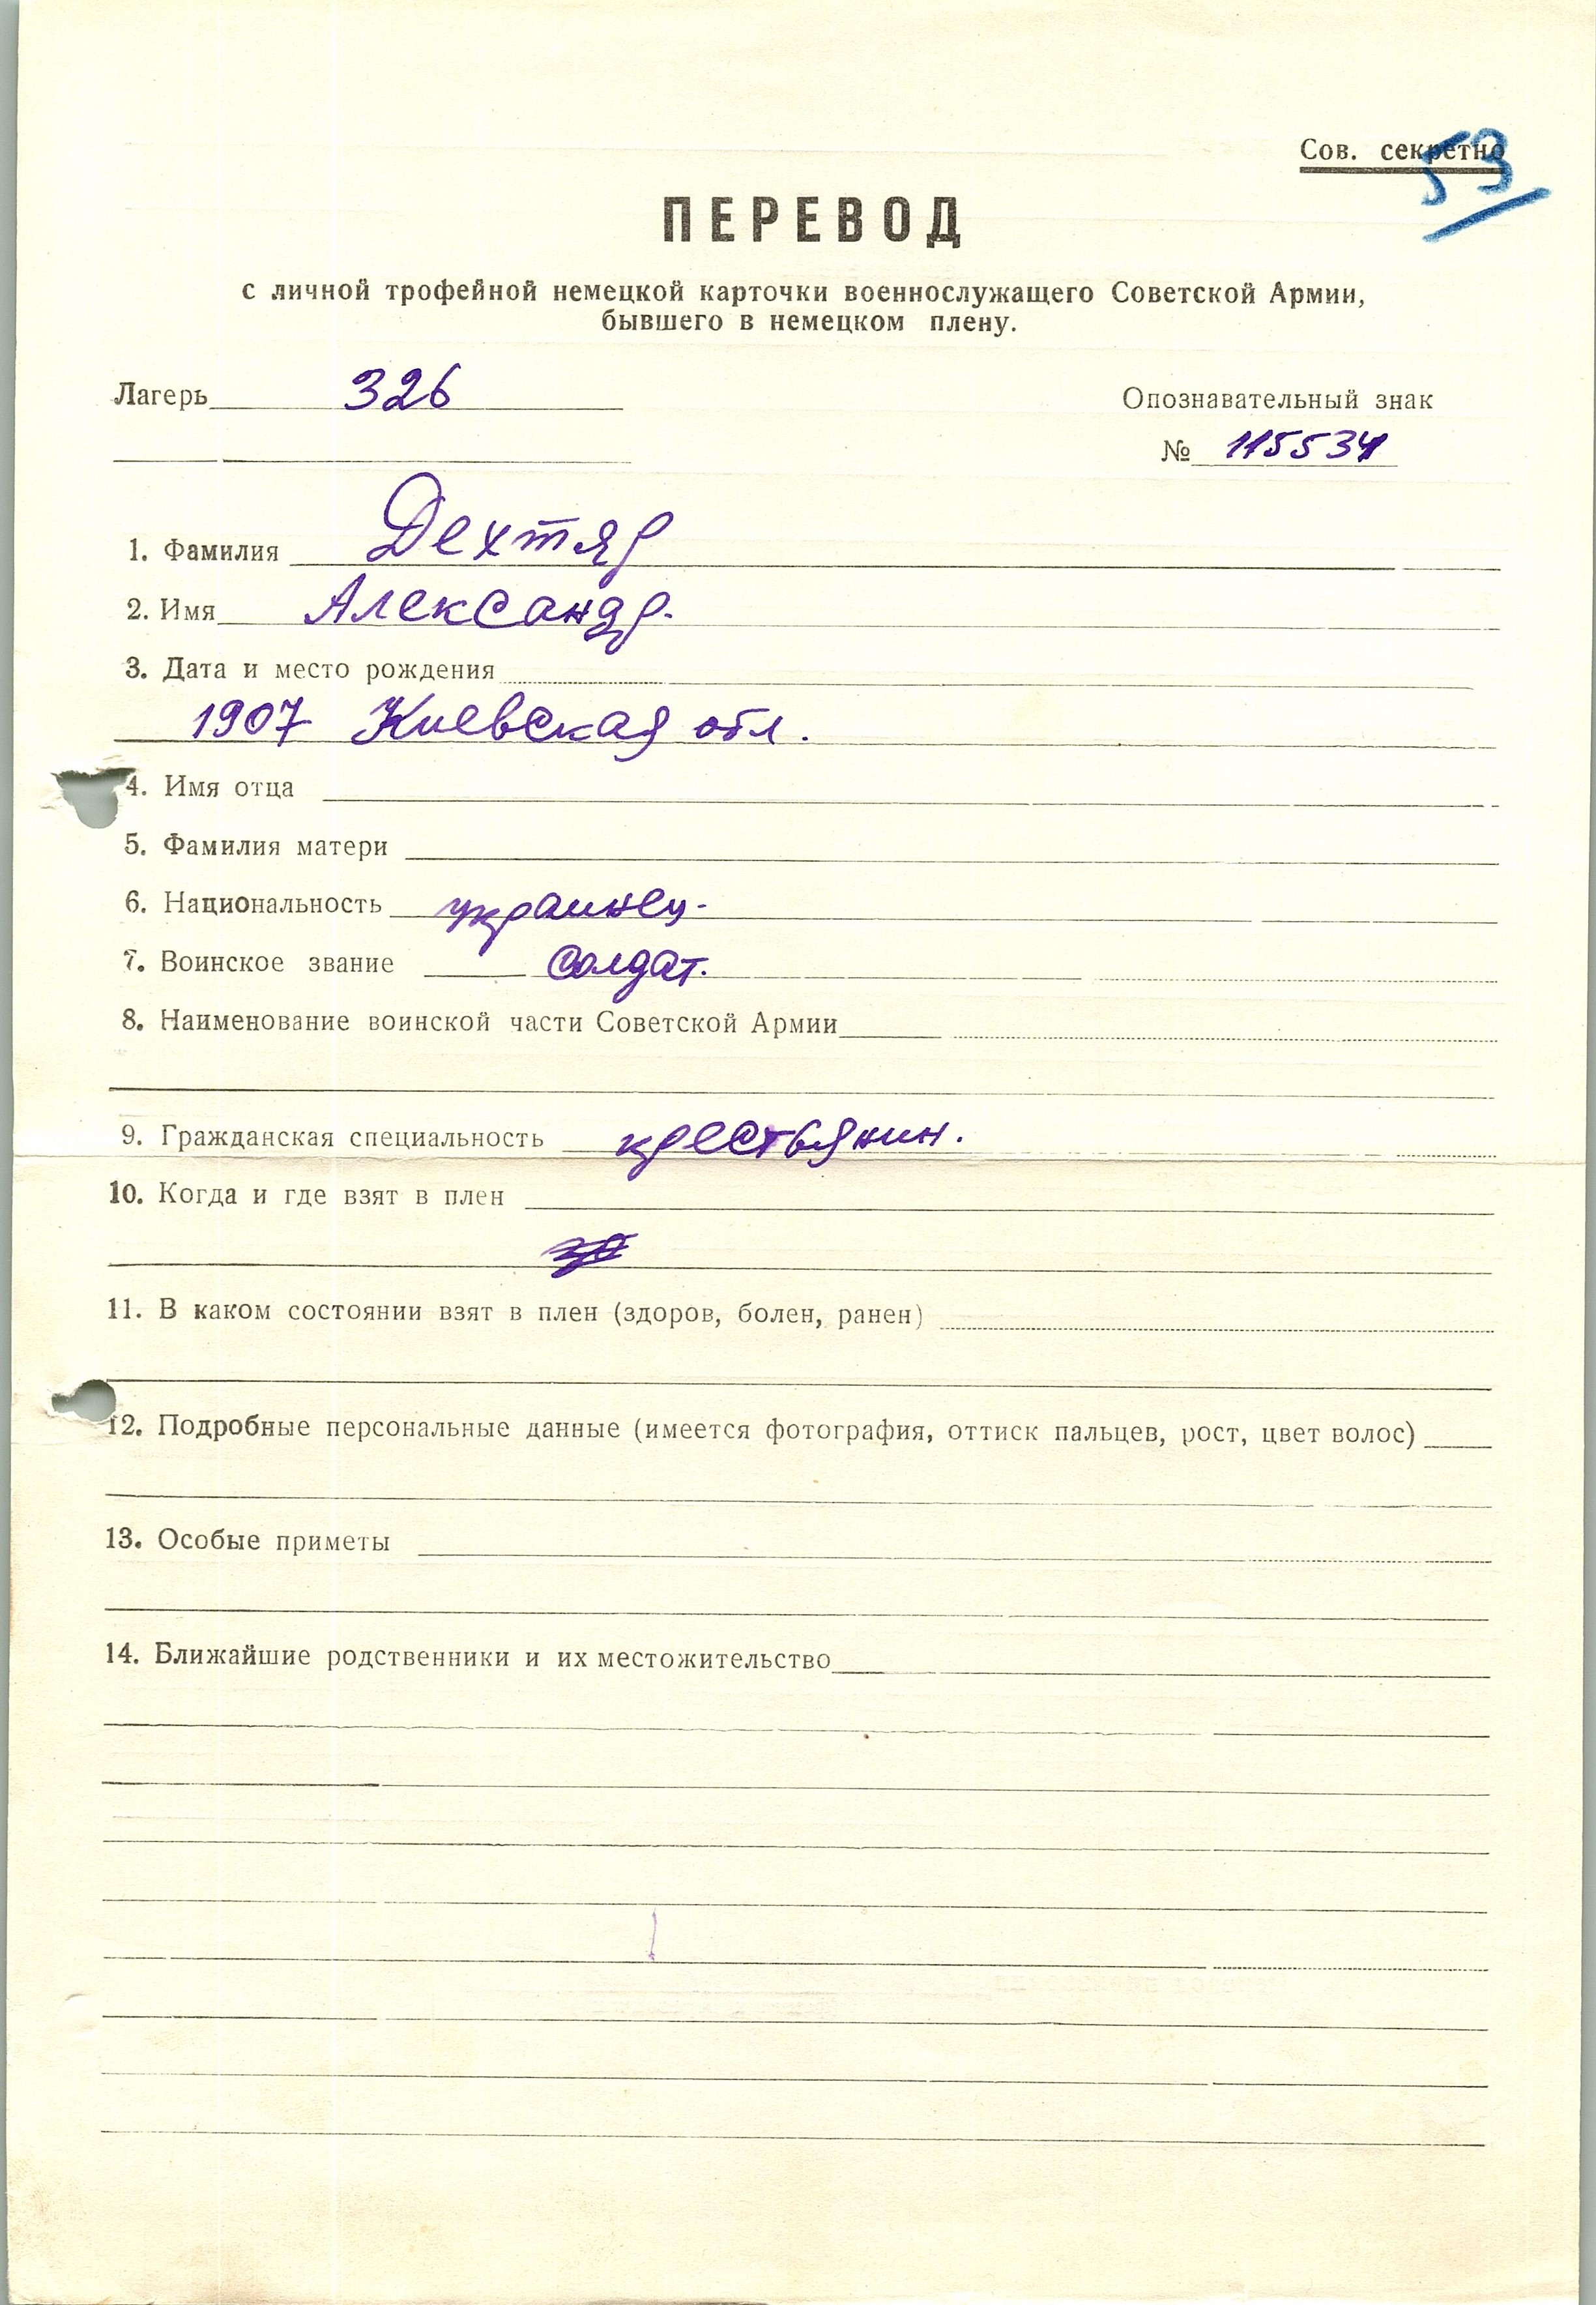 Сов. секретно
53
ПЕРЕВОД
с личной трофейной немецкой карточки военнослужащего Советской Армии,
бывшего в немецком плену.
Лагерь 326
Опознавательный знак
№ 115534
1. Фамилия Дехтяр
2. Имя Александр.
3. Дата и место рождения
1907 Киевская обл.
4. Имя отца
5. Фамилия матери
6. Национальность украинец.
7. Воинское звание Солдат.
8. Наименование воинской части Советской Армии
9. Гражданская специальность крестьянин.
10. Когда и где взят в плен
11. В каком состоянии взят в плен (здоров, болен, ранен)
12. Подробные персональные данные (имеется фотография, оттиск пальцев, рост, цвет волос)
13. Особые приметы
14. Ближайшие родственники и их местожительство